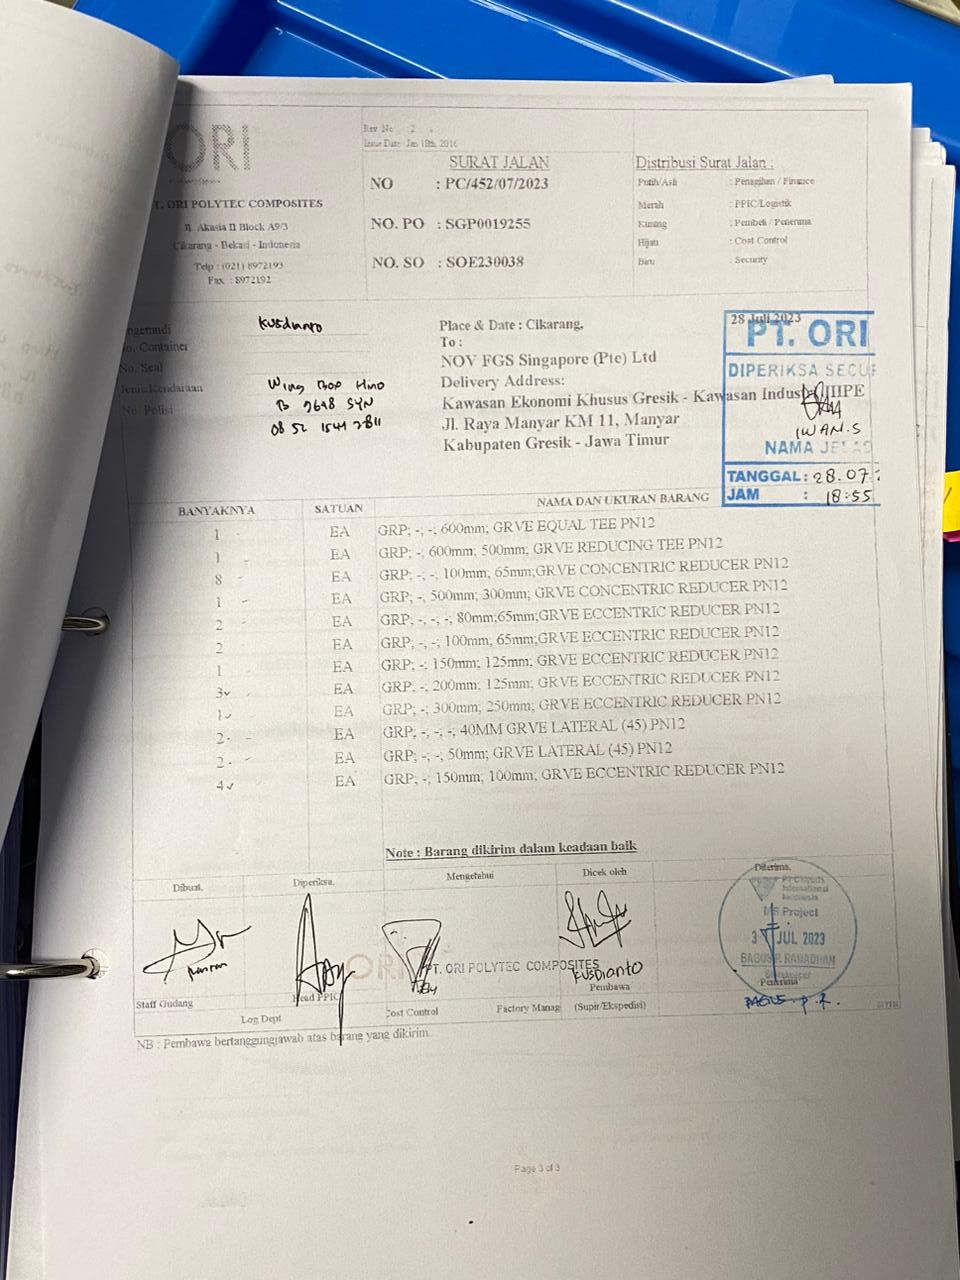 ORI
T. ORI POLYTEC COMPOSITES
Jl. Akasia II Block A9/3
Cikarang - Bekasi - Indonesia
Telp : (021) 8972193
Fax : 8972192
Rev No 2
Issue Date Jan 18th, 2016
SURAT JALAN
NO : PC/452/07/2023
NO. PO : SGP0019255
NO. SO : SOE230038
Distribusi Surat Jalan :
Putih/Asli : Penagihan / Finance
Merah : PPIC/Logistik
Kuning : Pembeli / Penerima
Hijau : Cost Control
Biru : Security
ngemudi Kusdianto
No. Container
No. Seal
Jenis Kendaraan Wing Box Hino
No. Polisi B 9698 SYN
Place & Date : Cikarang,
28 Juli 2023
To :
NOV FGS Singapore (Pte) Ltd
Delivery Address:
Kawasan Ekonomi Khusus Gresik - Kawasan Industri JIIPE
Jl. Raya Manyar KM 11, Manyar
Kabupaten Gresik - Jawa Timur
PT. ORI
DIPERIKSA SECU
IWAN.S
NAMA JELAS
TANGGAL : 28.07
JAM : 18:55
BANYAKNYA SATUAN NAMA DAN UKURAN BARANG
1 EA GRP; -, -, 600mm; GRVE EQUAL TEE PN12
1 EA GRP; -, 600mm; 500mm; GRVE REDUCING TEE PN12
8 EA GRP; -, -; 100mm; 65mm;GRVE CONCENTRIC REDUCER PN12
1 EA GRP; -, 500mm; 300mm; GRVE CONCENTRIC REDUCER PN12
2 EA GRP; -, -, -; 80mm;65mm;GRVE ECCENTRIC REDUCER PN12
2 EA GRP; -, -; 100mm; 65mm;GRVE ECCENTRIC REDUCER PN12
1 EA GRP; -; 150mm; 125mm; GRVE ECCENTRIC REDUCER PN12
3 EA GRP; -, 200mm; 125mm; GRVE ECCENTRIC REDUCER PN12
1 EA GRP; -; 300mm; 250mm; GRVE ECCENTRIC REDUCER PN12
2 EA GRP; -, -, -; 40MM GRVE LATERAL (45) PN12
2 EA GRP; -, -; 50mm; GRVE LATERAL (45) PN12
4 EA GRP; -, 150mm; 100mm; GRVE ECCENTRIC REDUCER PN12
Note : Barang dikirim dalam keadaan baik
Dibuat, Diperiksa, Mengetahui Dicek oleh Diterima,
International
Indonesia
Project
3 JUL 2023
BAGUS P. RAMADHAN
Storekeeper
ORI
PT. ORI POLYTEC COMPOSITES
KUSDIANTO
Staff Gudang Head PPIC Cost Control Factory Manag Pembawa Penerima
(Supir/Ekspedisi)
BAGUS . P. R.
Log Dept
NB : Pembawa bertanggungjawab atas barang yang dikirim.
Page 3 of 3